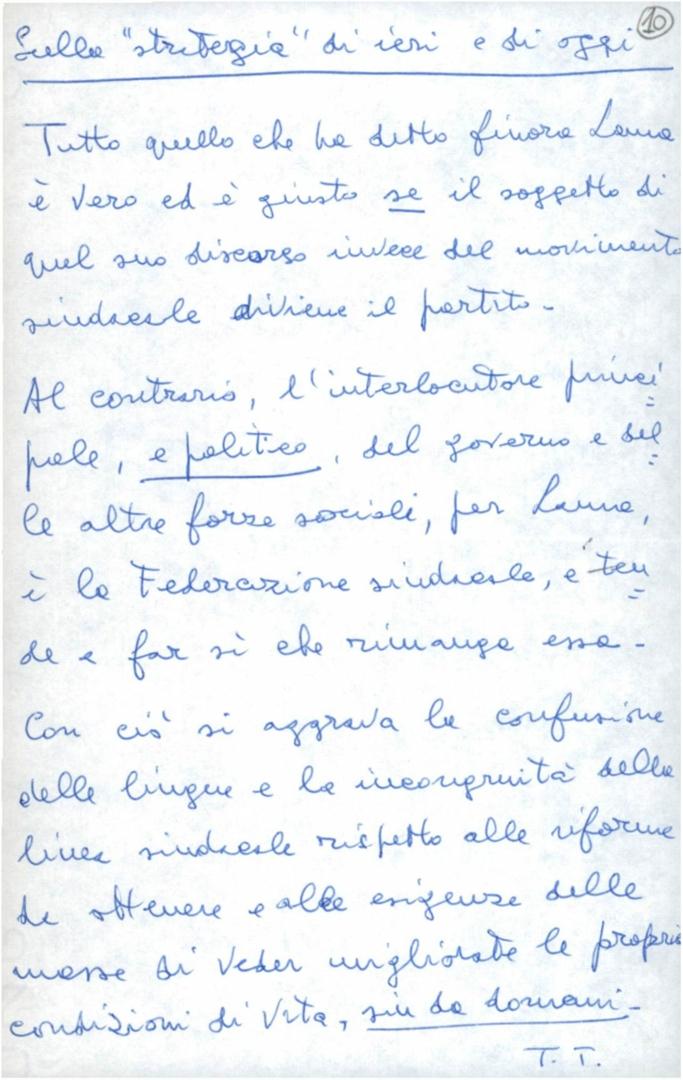 10
Sulla "strategia" di ieri e di oggi
Tutto quello che ha detto finora Lama
è vero ed è giusto se il soggetto di
quel suo discorso invece del movimento
sindacale diviene il partito -
Al contrario, l'interlocutore princi=
pale, e politico, del governo e del=
le altre forze sociali, per Lama,
è la Federazione sindacale, e ten=
de a far sì che rimanga essa -
Con ciò si aggrava la confusione
delle lingue e la incongruità della
linea sindacale rispetto alle riforme
da ottenere e alle esigenze delle
masse di veder migliorate le proprie
condizioni di vita, sin da domani -
T. T.